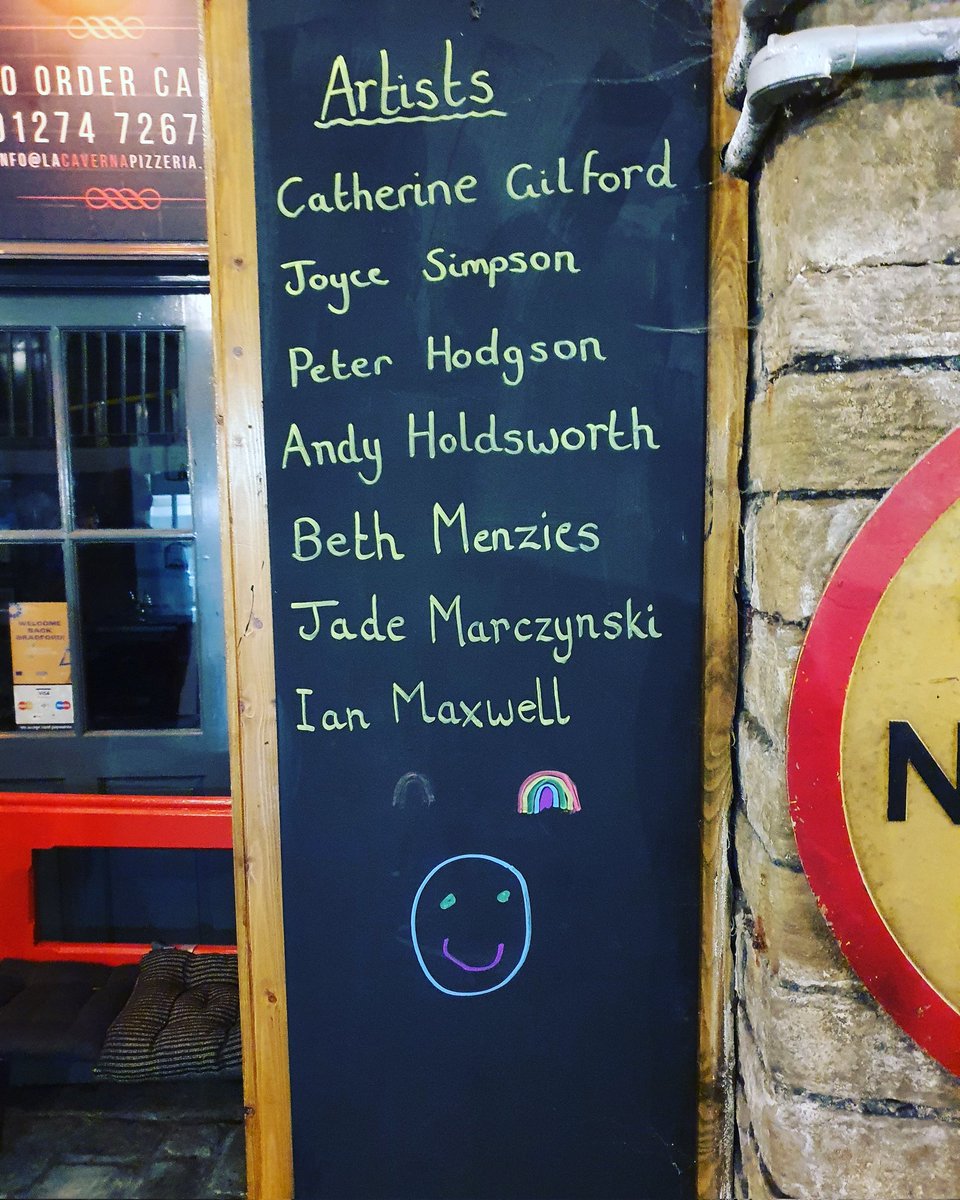 O ORDER CA
01274 7267
NFO@LACAVERNAPIZZERIA.
Artists
Catherine Gilford
Joyce Simpson
Peter Hodgson
Andy Holdsworth
Beth Menzies
Jade Marczynski
Ian Maxwell
WELCOME
BACK
BRADFORD!
VISA
N